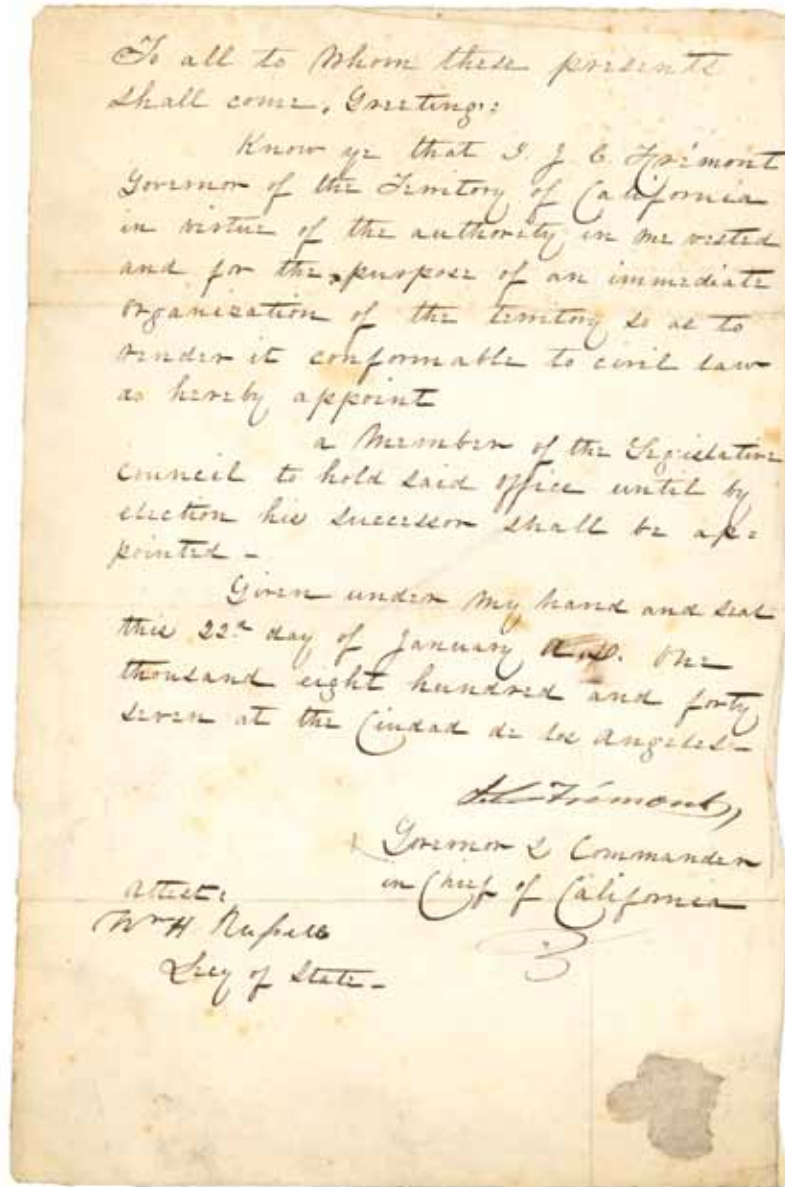 To all to Whom these presents
shall come, Greeting:
Know ye that I. J C Frémont
Governor of the Territory of California
in virtue of the authority in me vested
and for the purpose of an immediate
organization of the territory so as to
render it conformable to civil law
do hereby appoint
a Member of the Legislative
council to hold said office until by
election his successor shall be ap=
pointed -
Given under my hand and seal
this 22d day of January A.D. One
thousand eight hundred and forty
seven at the Ciudad de los Angeles -
J. C. Frémont,
Governor & Commander
in Chief of California
Attest:
Wm H Russell
Secy of State -